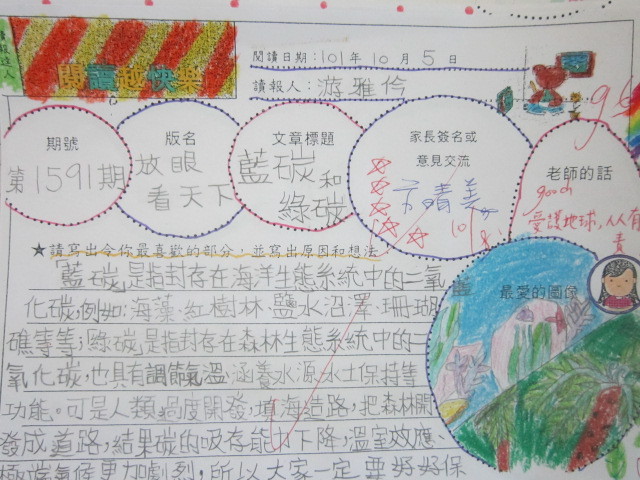 讀報達人
閱讀越快樂
閱讀日期:101年10月5日
讀報人:游雅伶
期號
第1591期
版名
放眼
看天下
文章標題
藍碳和
綠碳
家長簽名或
意見交流
10/8
老師的話
good
愛護地球,人人有
責
96
★請寫出令你最喜歡的部分,並寫出原因和想法
最愛的圖像
「藍碳」是指封存在海洋生態系統中的二氧
化碳,例如:海藻、紅樹林、鹽水沼澤、珊瑚
礁等等;「綠碳」是指封存在森林生態系統中的二
氧化碳,也具有調節氣溫、涵養水源、水土保持等
功能。可是人類過度開發,填海造路,把森林開
發成道路,結果碳的吸存能力下降,溫室效應、
極端氣候更加劇烈,所以大家一定要好好保